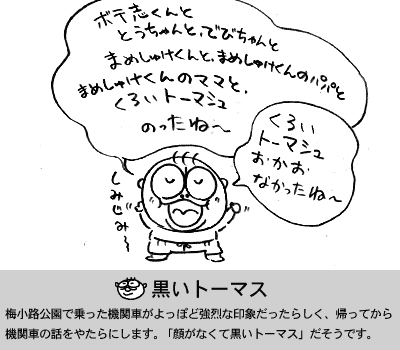 ボテ志くんと
とうちゃんと、でびちゃんと
まめしゅけくんと、まめしゅけくんのパパと
まめしゅけくんのママと、
くろいトーマシュ
のったね〜
くろい
トーマシュ
おかお
なかったね〜
しみじみ〜
黒いトーマス
梅小路公園で乗った機関車がよっぽど強烈な印象だったらしく、帰ってから
機関車の話をやたらにします。「顔がなくて黒いトーマス」だそうです。